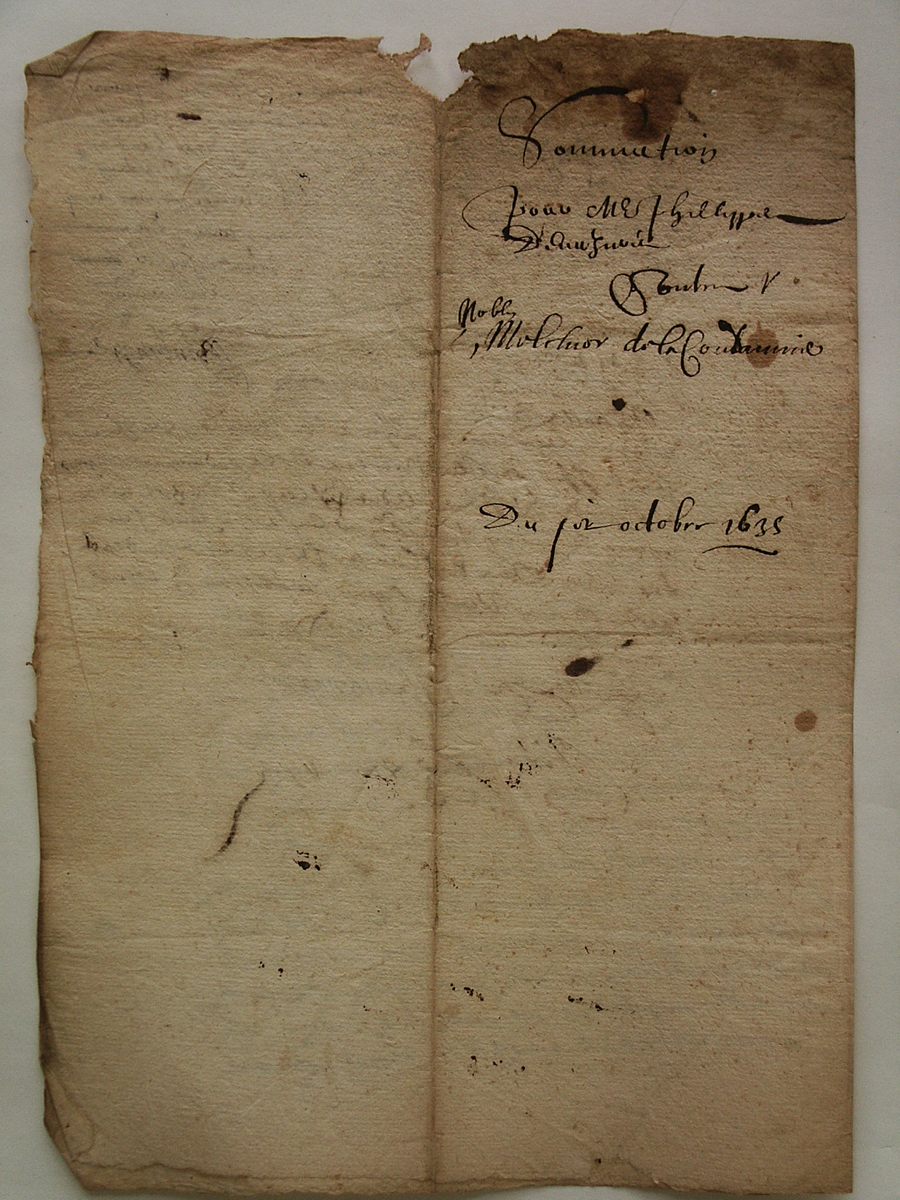 Sommation
pour Me Phelippe
Contre
Noble
Melchior de la Condamine
Du per octobre 1635